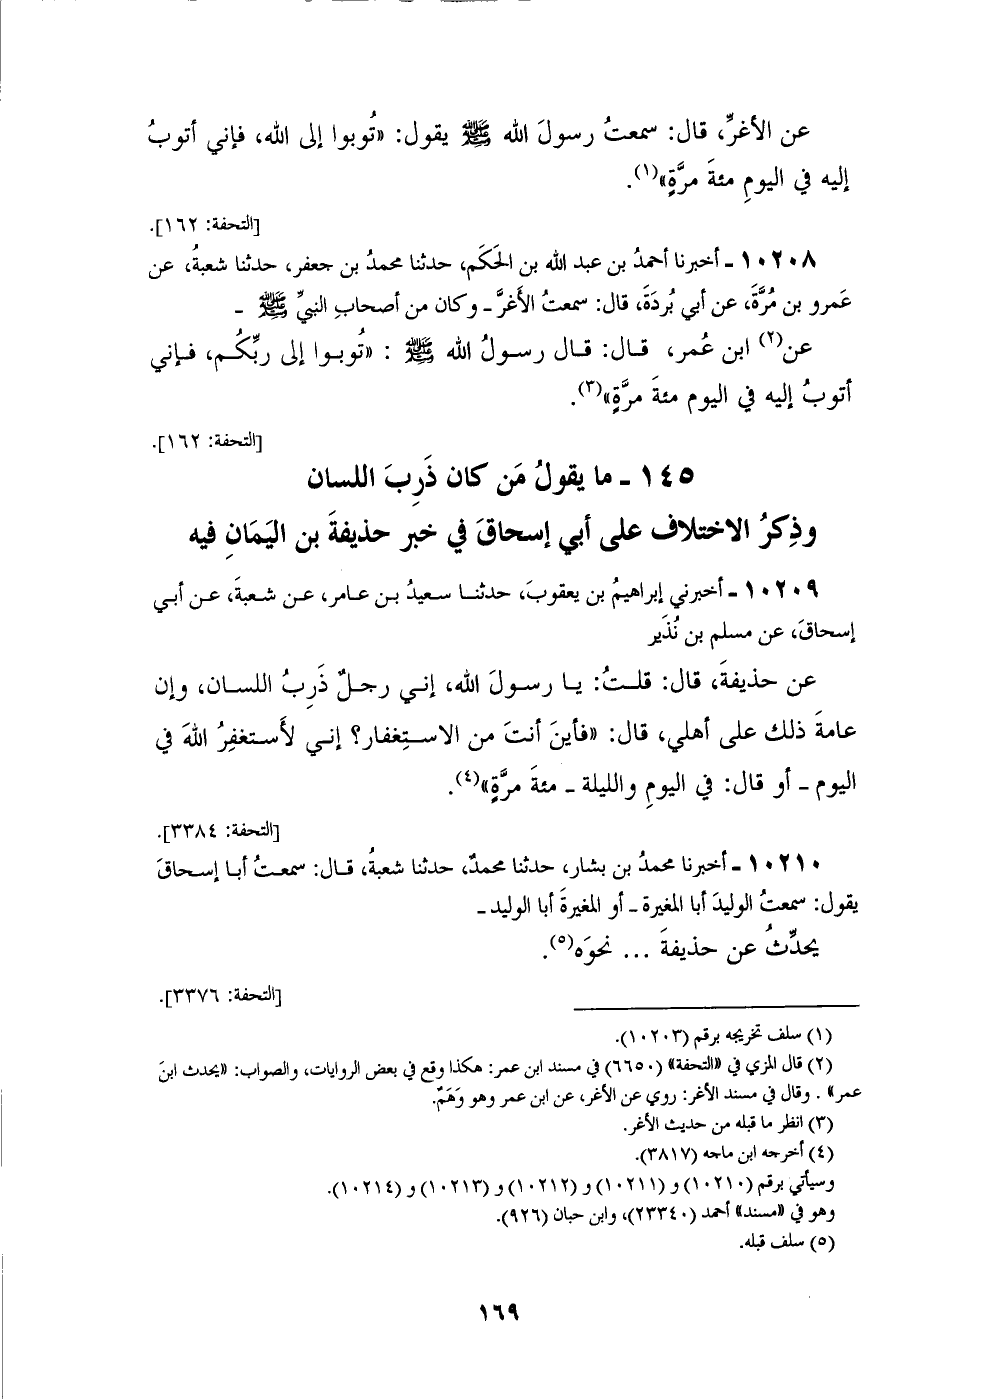 عن الأغرِّ، قال: سمعتُ رسولَ الله ﷺ يقول: «تُوبوا إلى الله، فإني أتوبُ
إليه في اليومِ مئةَ مرَّةٍ»(١).
[التحفة: ١٦٢].
١٠٢٠٨ ـ أخبرنا أحمدُ بن عبد الله بن الحَكَم، حدثنا محمدُ بن جعفر، حدثنا شعبةُ، عن
عَمرو بن مُرَّةَ، عن أبي بُردَةَ، قال: سمعتُ الأَغرَّ ـ وكان من أصحابِ النبيِّ ﷺ ـ
عن(٢) ابن عُمر، قال: قال رسولُ الله ﷺ : «تُوبوا إلى ربِّكُم، فإني
أتوبُ إليه في اليوم مئةَ مرَّةٍ»(٣).
[التحفة: ١٦٢].
١٤٥ ـ ما يقولُ مَن كان ذَرِبَ اللسان
وذِكرُ الاختلاف على أبي إسحاقَ في خبر حذيفةَ بن اليَمَانِ فيه
١٠٢٠٩ ـ أخبرني إبراهيمُ بن يعقوبَ، حدثنا سعيدُ بن عامر، عن شعبةَ، عن أبي
إسحاقَ، عن مسلم بن نُذَير
عن حذيفةَ، قال: قلتُ: يا رسولَ الله، إني رجلٌ ذَرِبُ اللسان، وإن
عامةَ ذلك على أهلي، قال: «فأينَ أنتَ من الاستِغفار؟ إني لأَستغفِرُ اللهَ في
اليوم ـ أو قال: في اليومِ والليلة ـ مئةَ مرَّةٍ»(٤).
[التحفة: ٣٣٨٤].
١٠٢١٠ ـ أخبرنا محمدُ بن بشار، حدثنا محمدٌ، حدثنا شعبةُ، قال: سمعتُ أبا إسحاقَ
يقول: سمعتُ الوليدَ أبا المغيرة ـ أو المغيرةَ أبا الوليد ـ
يحدِّثُ عن حذيفةَ ... نحوَه(٥).
[التحفة: ٣٣٧٦].
(١) سلف تخريجه برقم (١٠٢٠٣).
(٢) قال المزي في «التحفة» (٦٦٥٠) في مسند ابن عمر: هكذا وقع في بعض الروايات، والصواب: «يحدث ابنَ
عمر» . وقال في مسند الأغر: روي عن الأغر، عن ابن عمر وهو وَهَمٌ.
(٣) انظر ما قبله من حديث الأغر.
(٤) أخرجه ابن ماجه (٣٨١٧).
وسيأتي برقم (١٠٢١٠) و (١٠٢١١) و (١٠٢١٢) و (١٠٢١٣) و (١٠٢١٤).
وهو في «مسند» أحمد (٢٣٣٤٠)، وابن حبان (٩٢٦).
(٥) سلف قبله.
١٦٩